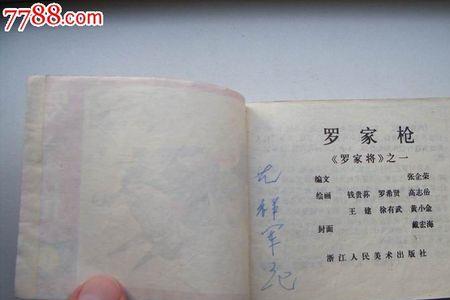 7788.com
罗家枪
《罗家将》之一
编文 张企荣
绘画 钱贵荪 罗希贤 高志岳
王建 徐有武 黄小金
封面 戴宏海
浙江人民美术出版社